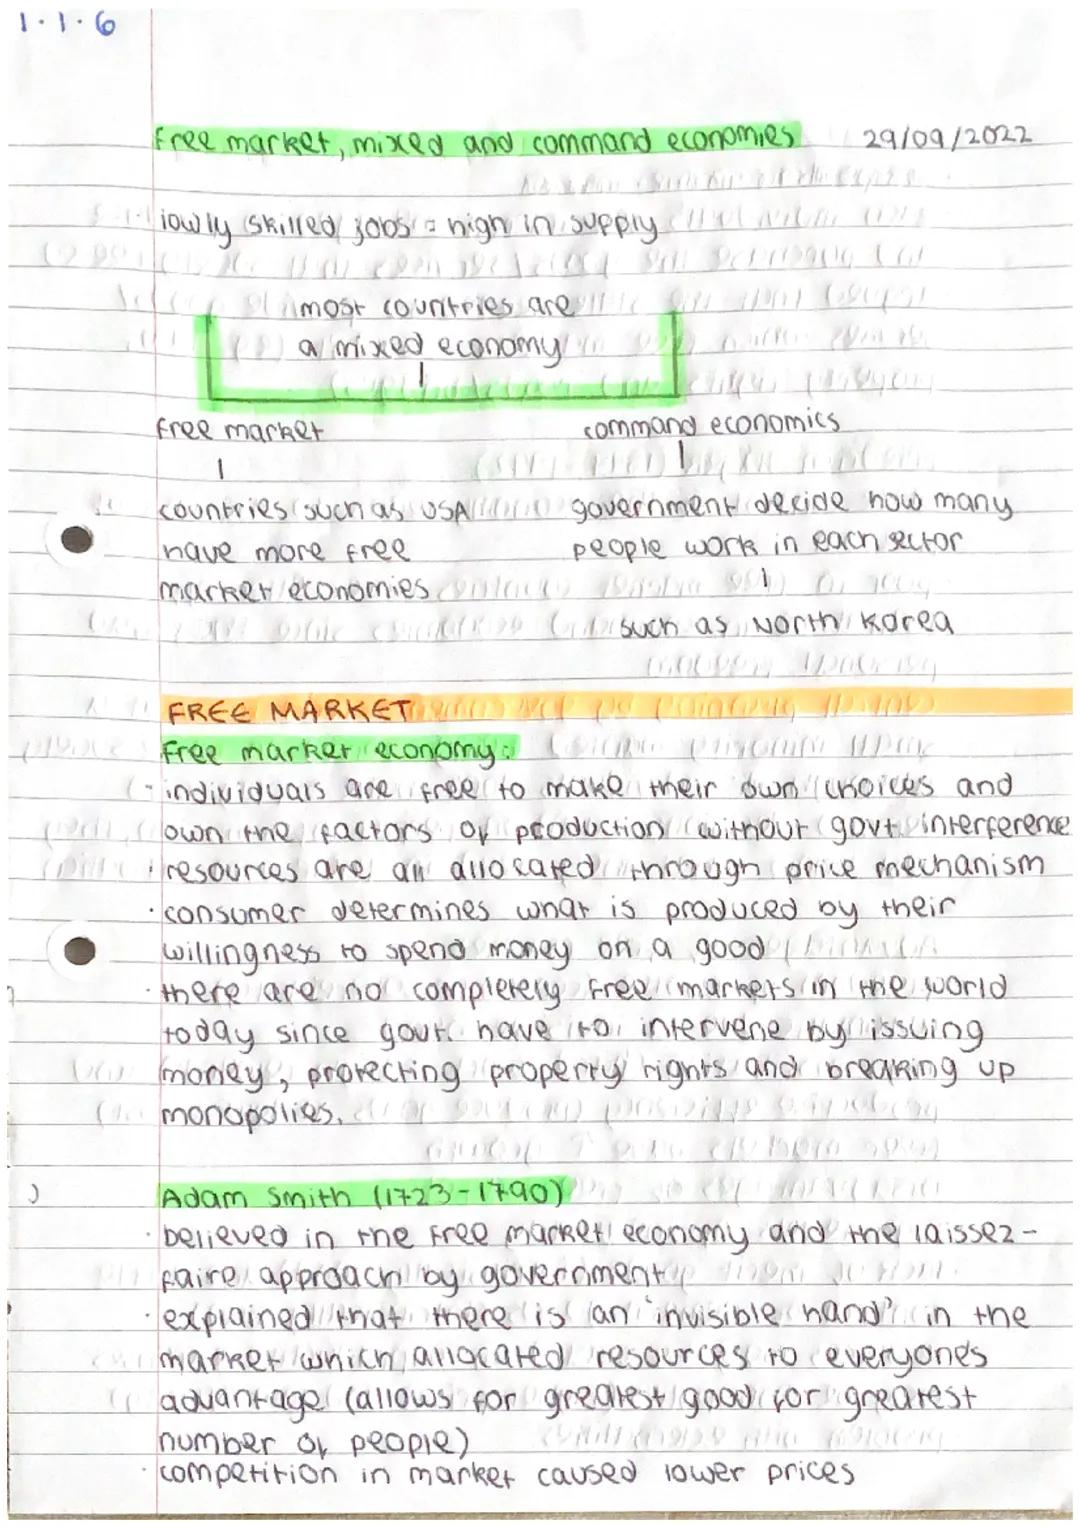 1.1.6
free market, mixed and command economies 29/09/2022
lowly skilled jobs = high in supply
most countries are
a mixed economy
free market
command economics
countries such as USA
have more free
market economies
government decide how many
people work in each sector
such as North Korea
FREE MARKET
free market economy:
- individuals are free to make their own choices and
own the factors of production without govt interference
· resources are all allocated through price mechanism
· consumer determines what is produced by their
willingness to spend money on a good
· there are no completely free markets in the world
today since govt. have to intervene by issuing
money, protecting property rights and breaking up
monopolies.
Adam Smith (1723-1790)
· believed in the free market economy and the laissez-
faire approach by government
· explained that there is an 'invisible hand' in the
market which allocated resources to everyone's
advantage (allows for greatest good for greatest
number of people)
· competition in market caused lower prices